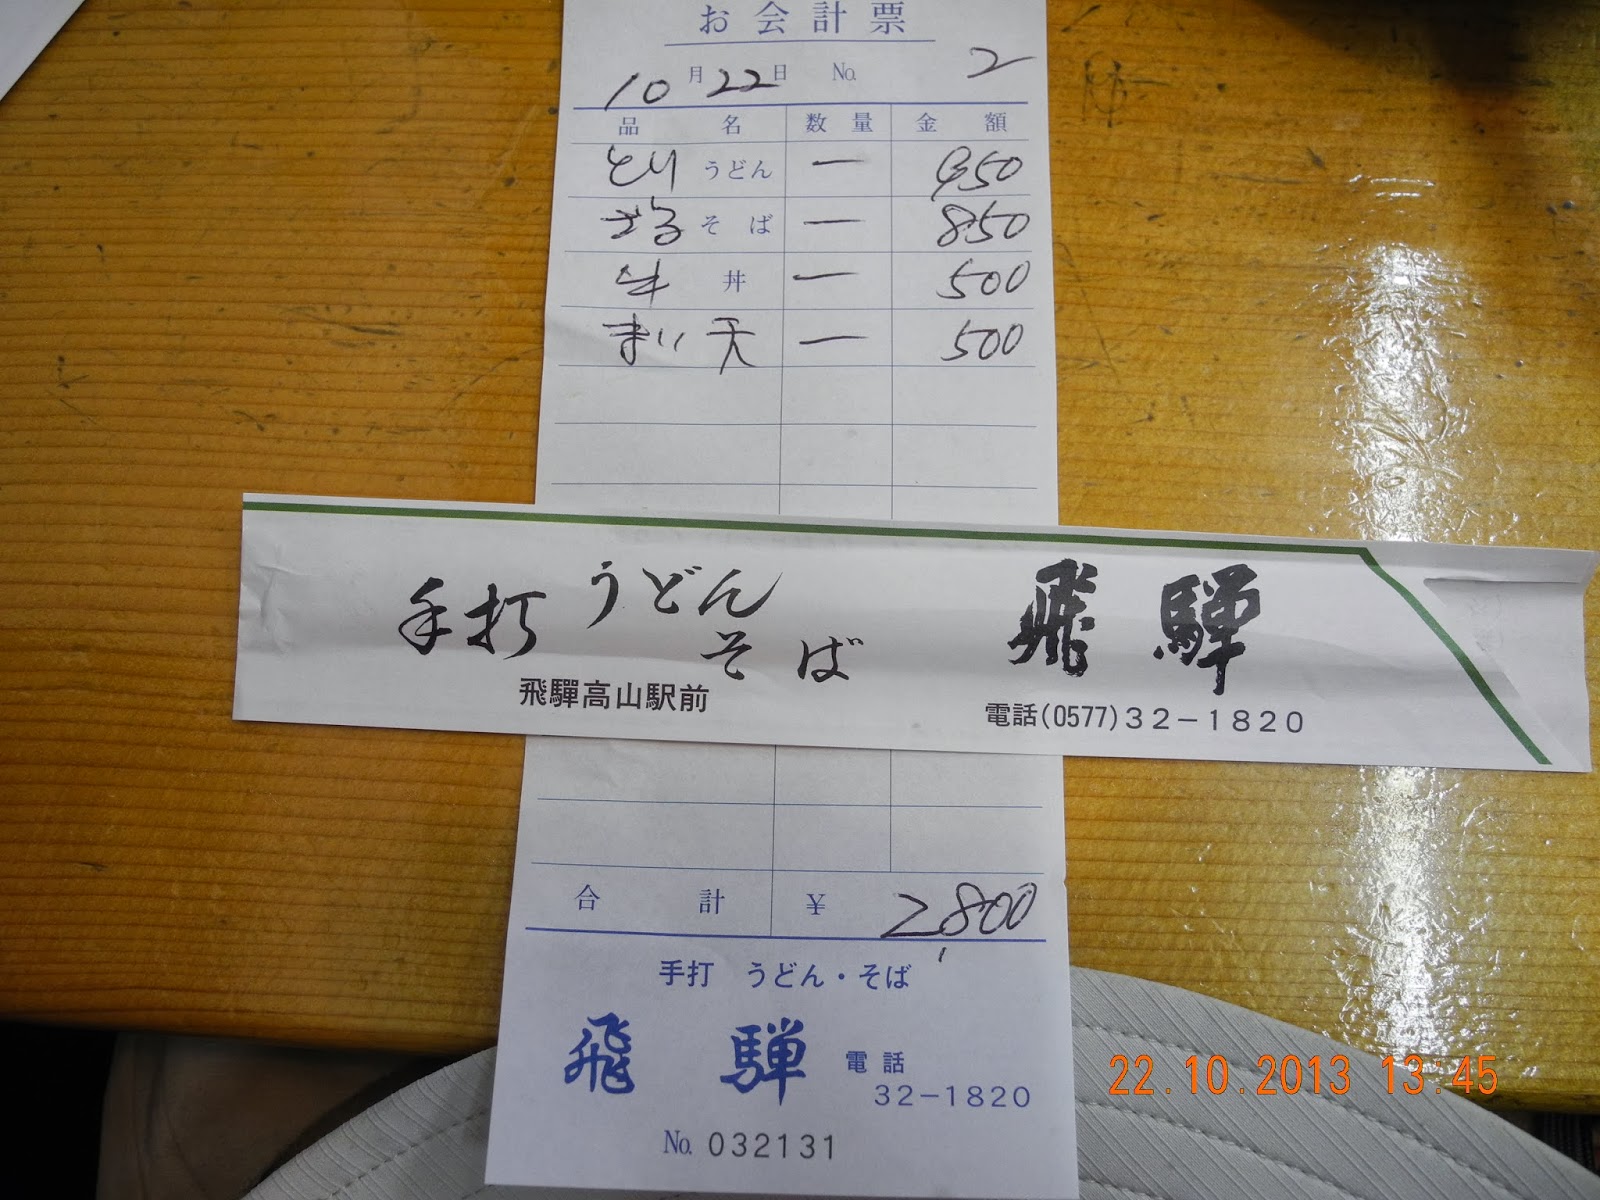 お会計票
10月22日 No. 2
品名 数量 金額
とりうどん 一 950
ざるそば 一 850
牛丼 一 500
まい天 一 500
手打うどんそば 飛驒
飛驒高山駅前 電話(0577)32-1820
合計 ¥ 2,800
手打 うどん・そば
飛騨 電話
32-1820
No. 032131
22.10.2013 13:45